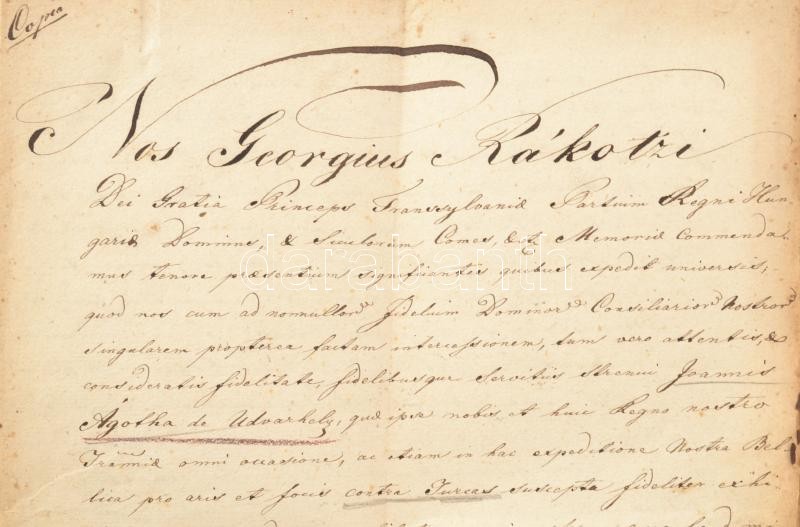 Copia
Nos Georgius Rákotzi
Dei Gratia Princeps Transsylvaniæ Partium Regni Hun-
gariæ Dominus, & Siculorum Comes, &c Memoriæ Commenda-
mus tenore præsentium significantes quibus expedit universis;
quod nos cum ad nonnullor Fidelium Dominor Consiliarior Nostror
singularem propterea factam intercessionem, tum vero attentis, &
consideratis fidelitate, fidelibusque servitiis strenui Joannis
Ágotha de Udvarhely, quæ ipse nobis et huic Regno nostro
Trănniæ omni occasione, ac etiam in hac expeditione Nostra Bel-
lica pro aris et focis contra Turcas suscepta fideliter exhi-
darabanth